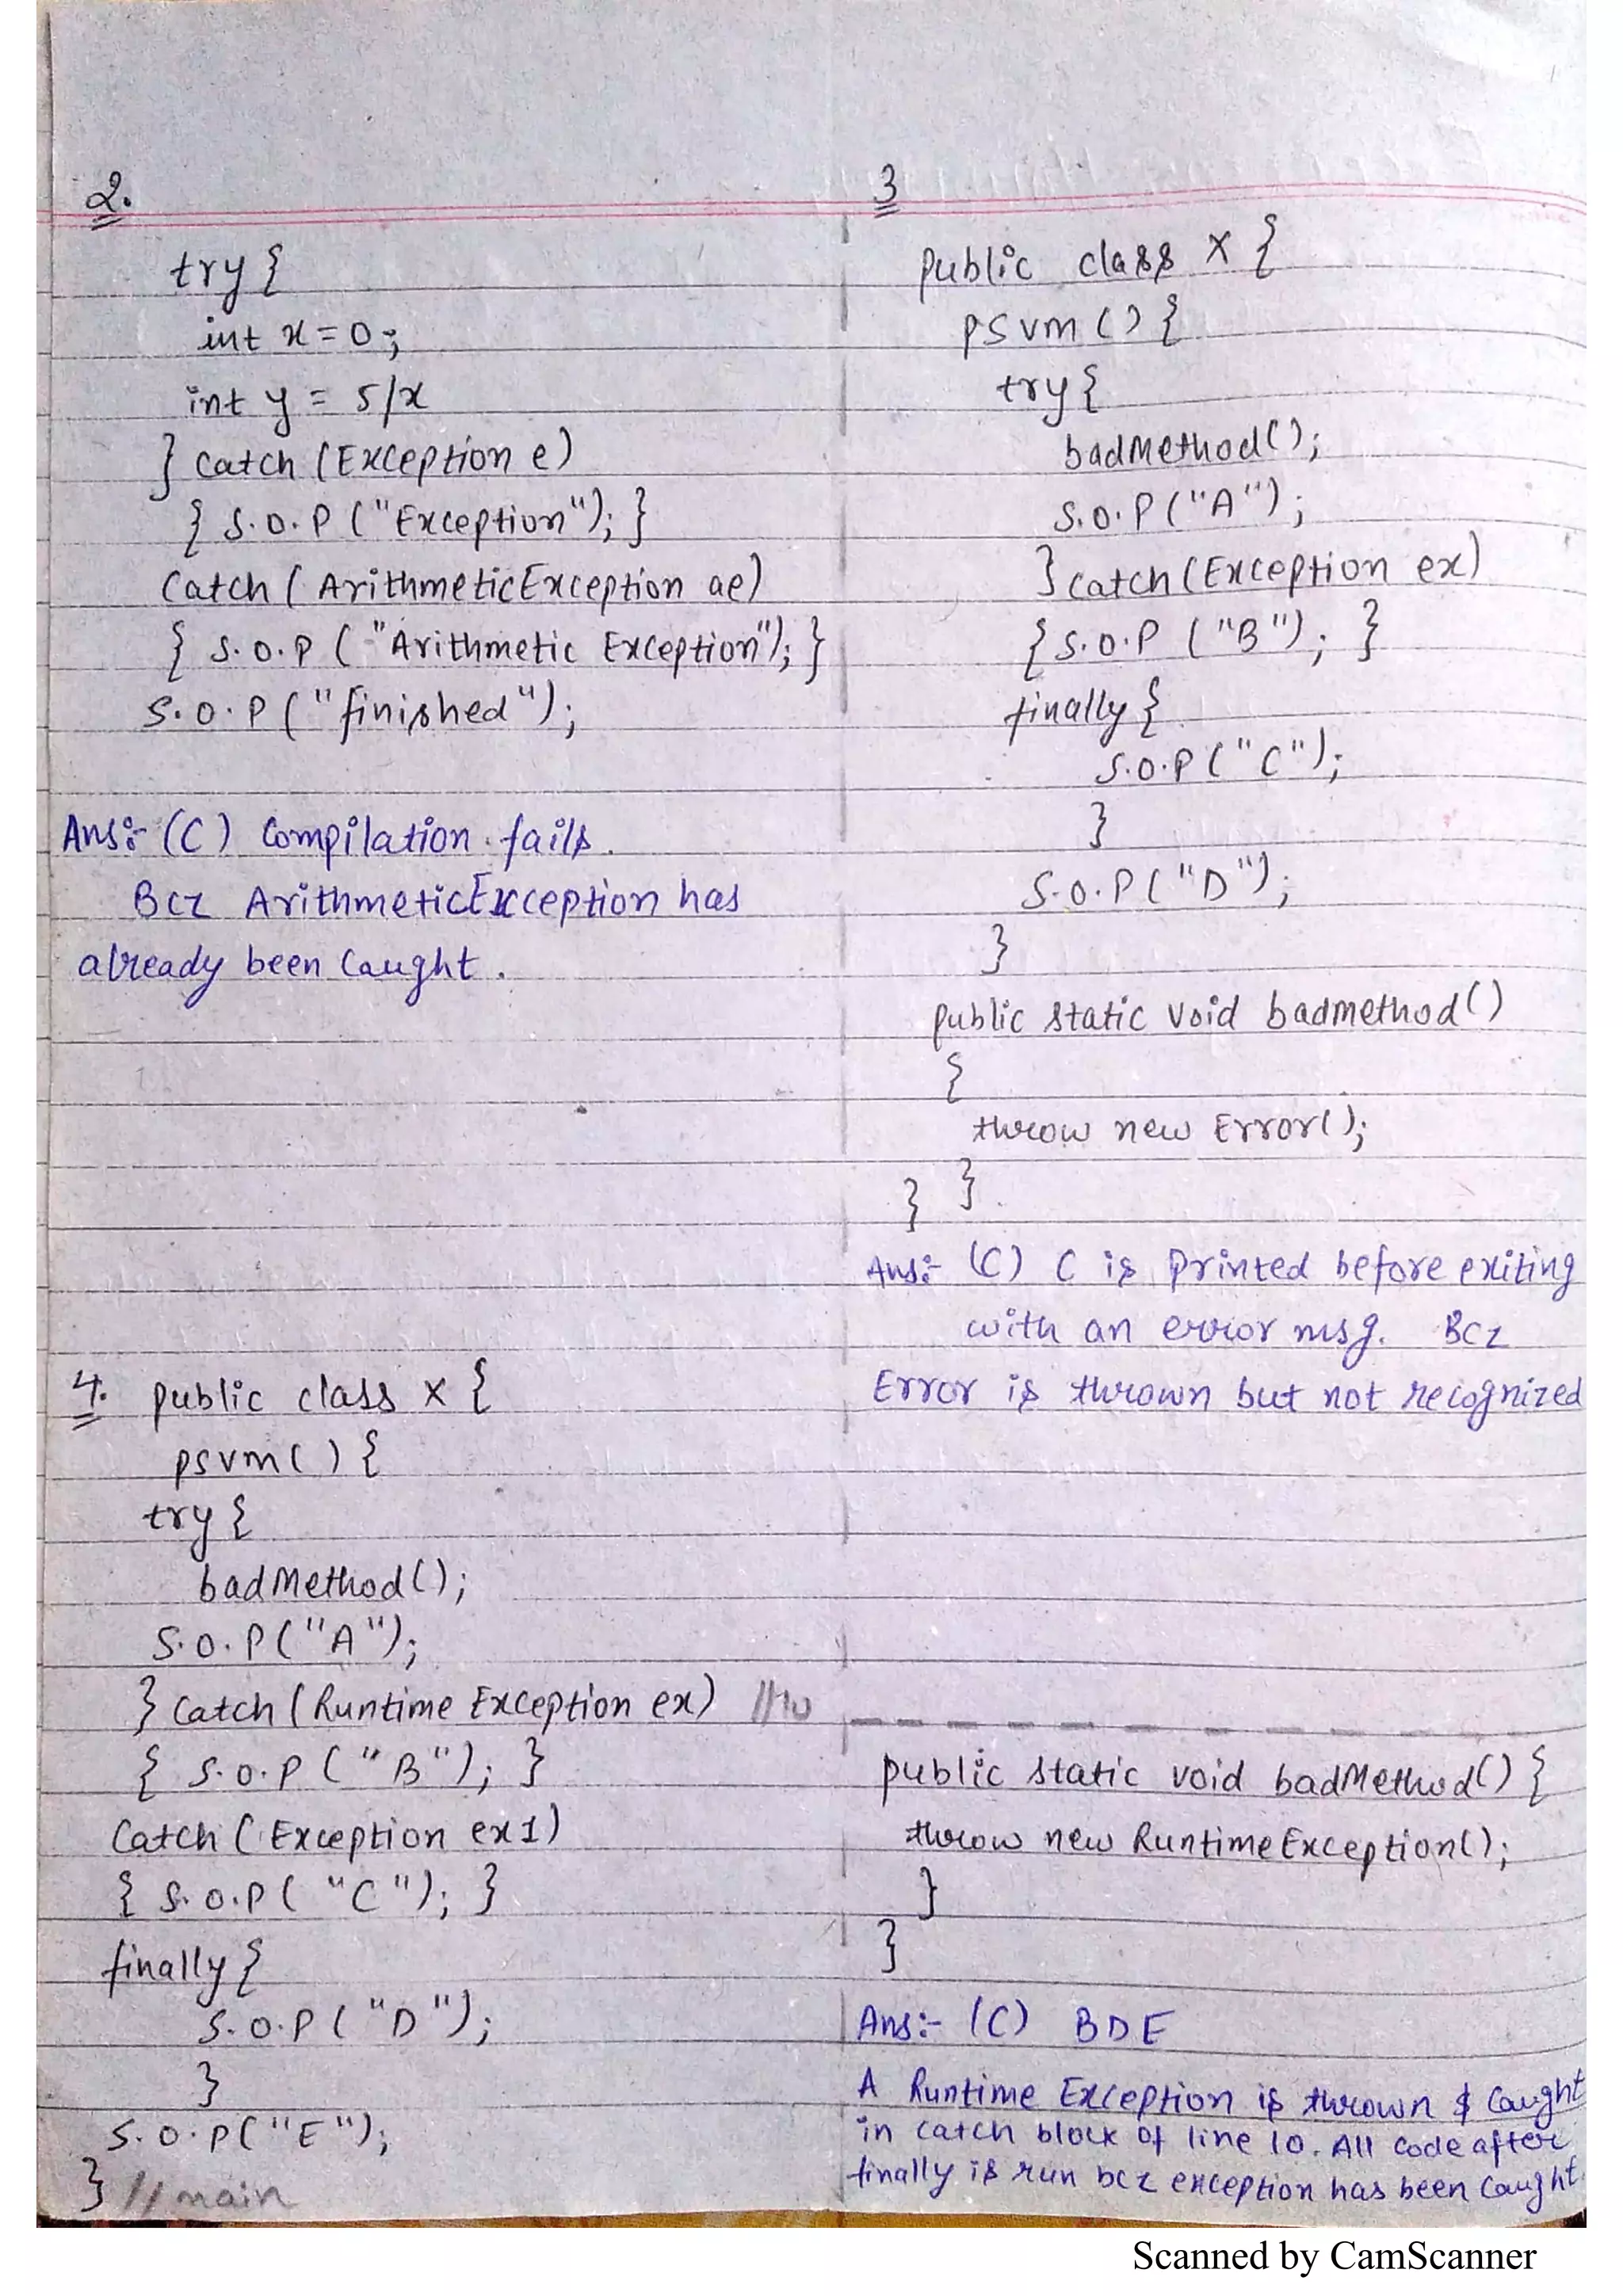 2.
try {
int x = 0;
int y = 5/x
} catch (Exception e)
{ S.O.P ("Exception"); }
Catch ( ArithmeticException ae)
{ S.O.P ( "Arithmetic Exception"); }
S.O.P ( "finished");
Ans:- (C) Compilation fails.
Bcz ArithmeticException has
already been Caught.
3
public class X {
psvm () {
try {
badMethod();
S.O.P ("A");
} catch (Exception ex)
{ S.O.P ("B"); }
finally {
S.O.P ("C");
}
S.O.P ("D");
}
public static void badmethod()
{
throw new Error();
}
}
Ans:- (C) C is printed before exiting
with an error msg. Bcz
Error is thrown but not recognized
4. public class X {
psvm () {
try {
badMethod();
S.O.P ("A");
} Catch (Runtime Exception ex) //10
{ S.O.P ("B"); }
Catch ( Exception ex1)
{ S.O.P ( "C"); }
finally {
S.O.P ( "D");
}
S.O.P ("E");
} // main
public static void badMethod() {
throw new RuntimeException();
}
}
Ans:- (C) BDE
A Runtime Exception is thrown & Caught
in catch block of line 10. All code after
finally is run bcz exception has been Caught.
Scanned by CamScanner